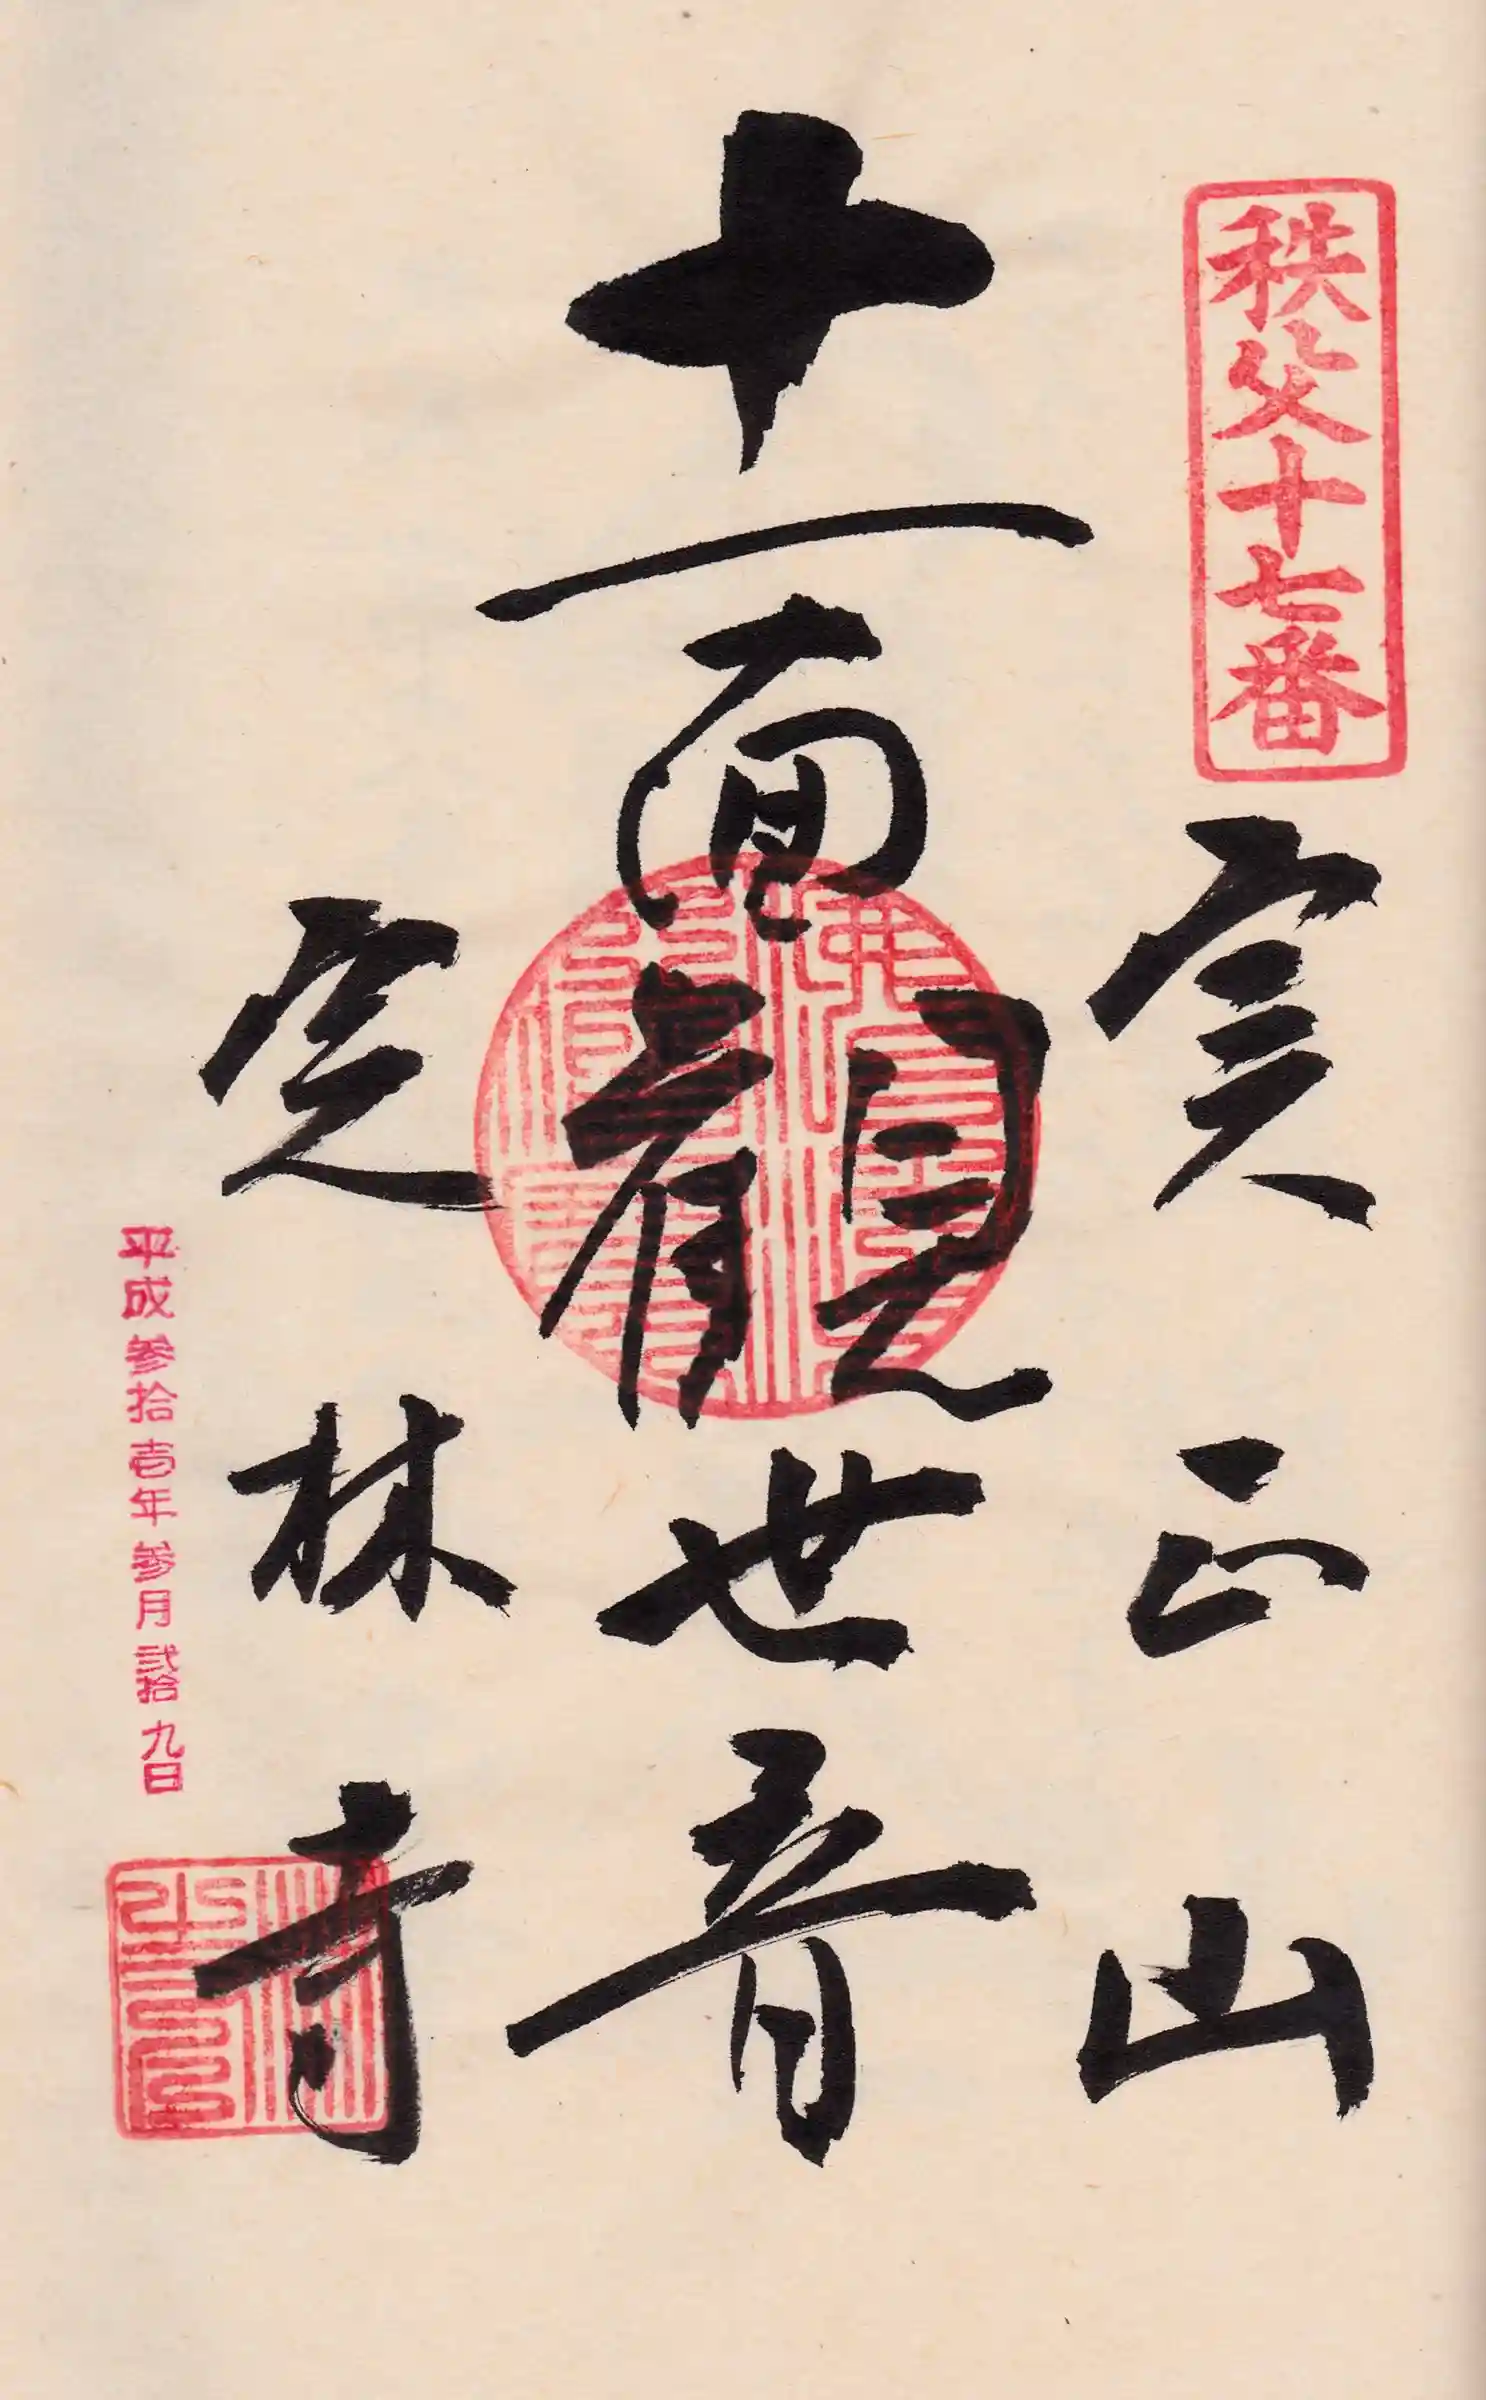 秩父十七番
実正山
十一面観世音
定林寺
平成参拾壱年参月弐拾九日